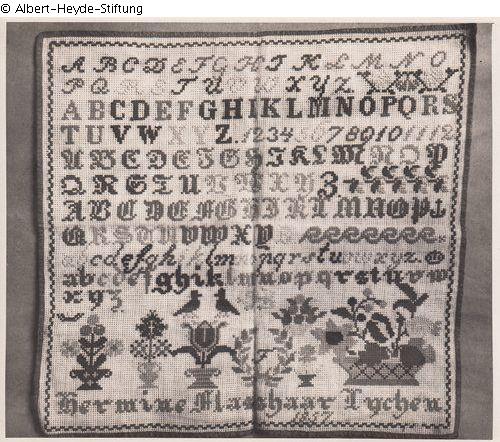 © Albert-Heyde-Stiftung
A B C D E F G H I K L M N O
P Q R S T U V W X Y Z
A B C D E F G H I K L M N O P Q R S
T U V W X Y Z. 1 2 3 4 5 6 7 8 9 10 11 12
A B C D E F G H I K L M N O P
Q R S T U V W X Y Z
A B C D E F G H I K L M N O P
Q R S T U V W X Y
a b c d e f g h i k l m n o p q r s t u v w x y z
a b c d e f g h i k l m n o p q r s t u v w
x y z
Hermine Lychen